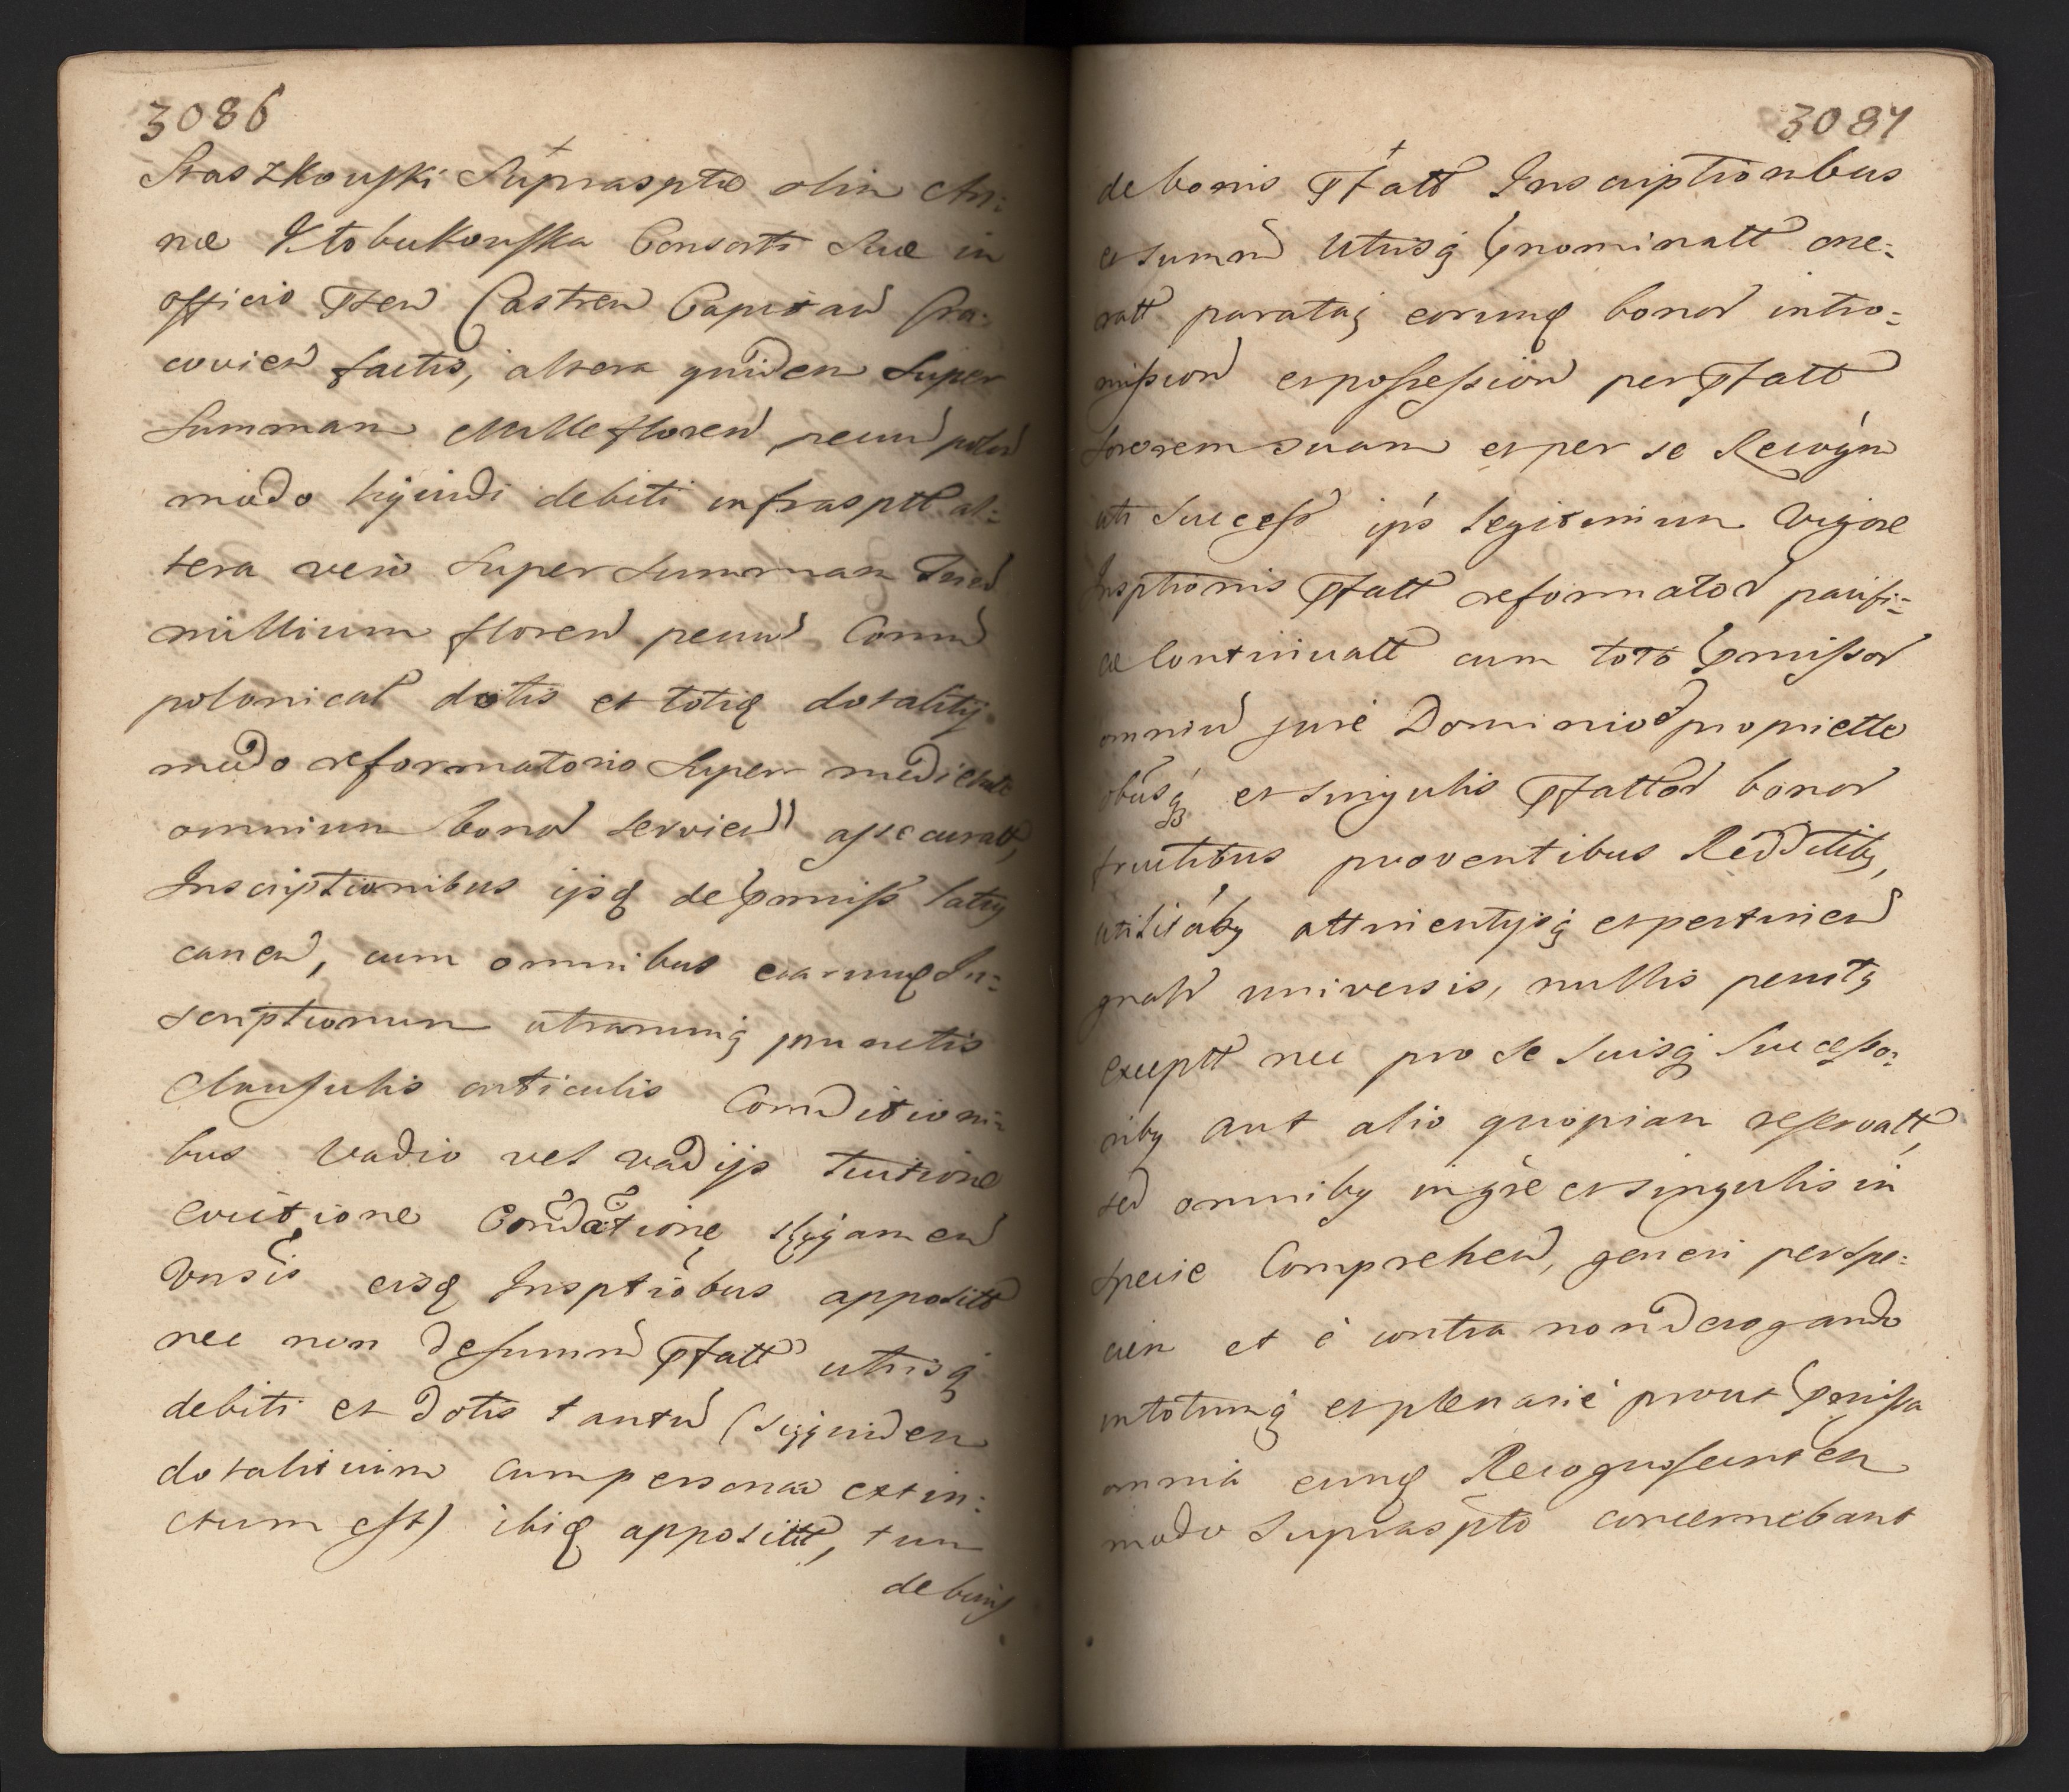 3086
Staszkowski Suprasptæ olim An:
næ Kłobukowska Consorti Suæ in
officio Pten Castren Capitan Cra:
covien factis, altera quidem Super
Summam Mille floren pecun polon
modo liquidi debiti infrasptt al:
tera vero Super Summam Trien
millium floren pecun Comm
polonical dotis et totiq dotalitij
modo reformatorio Super medietate
omnium bonor servien assecuratt,
Inscriptionibus ijsq de pmiss latiq
canen, cum omnibus earumq In:
scriptionum utrarumq punctis
Clausulis articulis Conditioni:
bus vadio vel vadijs tuitione
evictione Condatione ligamen
Vnsis eisq Insptiobus appositt
nec non de summ Pfatt utrisq
debiti et dotis tantu (siquidem
dotalitium cum persona extin:
ctum est) ibiq appositt, tum
de bonis
3087
de bonis Pfatt Inscriptionibus
et summ utrisq pnominatt one:
ratt paratas eorumq bonor intro:
mission et possession per Pfatt
Sororem suam et per se Recogn
uti Success ips legitimum vigore
Insptionis Pfatt reformator pacifi:
ce Continuatt cum toto pmissor
omnin jure Dominio et propriette
obusq et singulis Pfattor bonor
fructibus proventibus Redditibq,
utilitatbq attinentijsq et pertinen
gnalr universis, nullis penitq
exceptt nec pro se suisq Successo:
ribq aut alio quopiam reservatt,
sed omnibq in gñe et singulis in
specie Comprehen, generi per spe:
ciem et è contra non derogando
in totumq et plenarie prout pmissa
omnia eumq Recognoscentem
modo Suprasptto concernebant